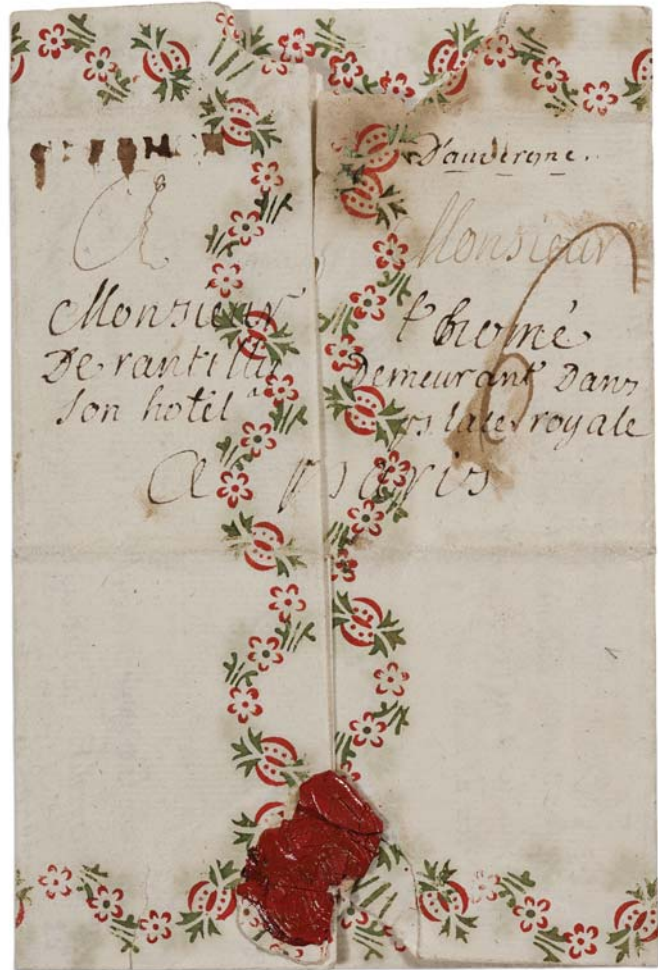 D'auvergne.
A Monsieur
Monsieur thomé
De rantilly demeurant Dans
son hotel a place royale
A paris
6